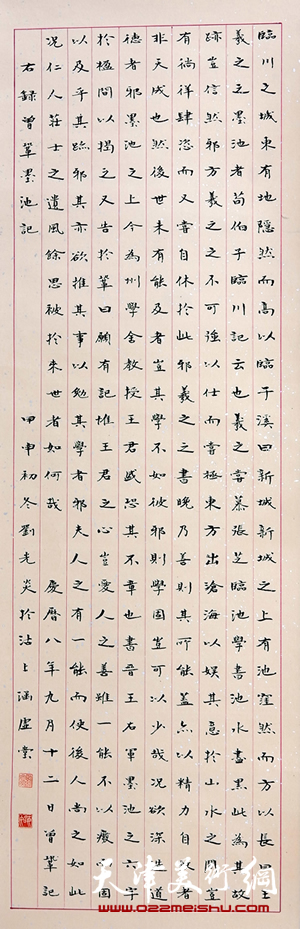 臨川之城東有地隱然而高以臨于溪曰新城新城之上有池窪然而方以長曰王
羲之之墨池者荀伯子臨川記云也羲之嘗慕張芝臨池學書池水盡黑此為其故
跡豈信然邪方羲之之不可強以仕而嘗極東方出滄海以娛其意於山水之間豈
有徜徉肆恣而又嘗自休於此邪羲之之書晚乃善則其所能蓋亦以精力自致者
非天成也然後世未有能及者豈其學不如彼邪則學固豈可以少哉況欲深造道
德者邪墨池之上今為州學舍教授王君盛恐其不章也書晉王右軍墨池之六字
於楹間以揭之又告於鞏曰願有記推王君之心豈愛人之善雖一能不以廢而因
以及乎其跡邪其亦欲推其事以勉其學者邪夫人之有一能而使後人尚之如此
況仁人莊士之遺風餘思被於來世者如何哉 慶曆八年九月十二日曾鞏記
右錄曾鞏墨池記 甲申初冬劉光炎於沽上涵虛堂
天津美術網
www.022meishu.com